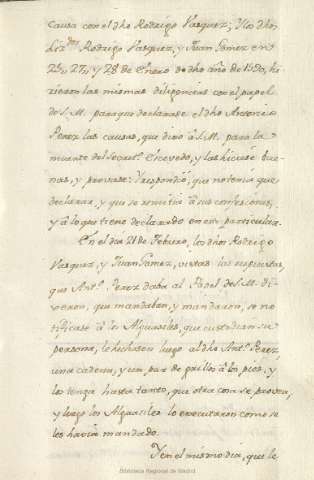 Causa con el dho Rodrigo Vasquez; Y los dhos
Lizdos Rodrigo Vasquez, y Juan Gomez en
27, y 28 de Enero de dho año de 1590, hi
zieron las mismas diligencias con el papel
de S.M. para que declarase el dho Antonio
Perez las causas, que dixo à S.M. para la
muerte del Secreto. Escovedo, y las hiciese bue
nas, y provase: Y respondió, que no tenia que
declarar, y que se remitia à sus confesiones,
y à lo que tiene declarado en este particular.
En el dia 21 de Febrero, los dhos Rodrigo
Vasquez, y Juan Gomez, vistas las respuestas,
que Anto. Perez daba al Papel de S.M. di
xeron, que mandaban, y mandaron, se no
tificase à los Alguasiles, que custodian su
persona, le hechasen luego al dho Anto. Perez,
una cadena, y un par de grillos à los pies, y
los tenga hasta tanto, que otra cosa se provea,
y luego los Alguaciles lo executaron como se
les havia mandado.
Y en el mismo dia, que le
Biblioteca Regional de Madrid